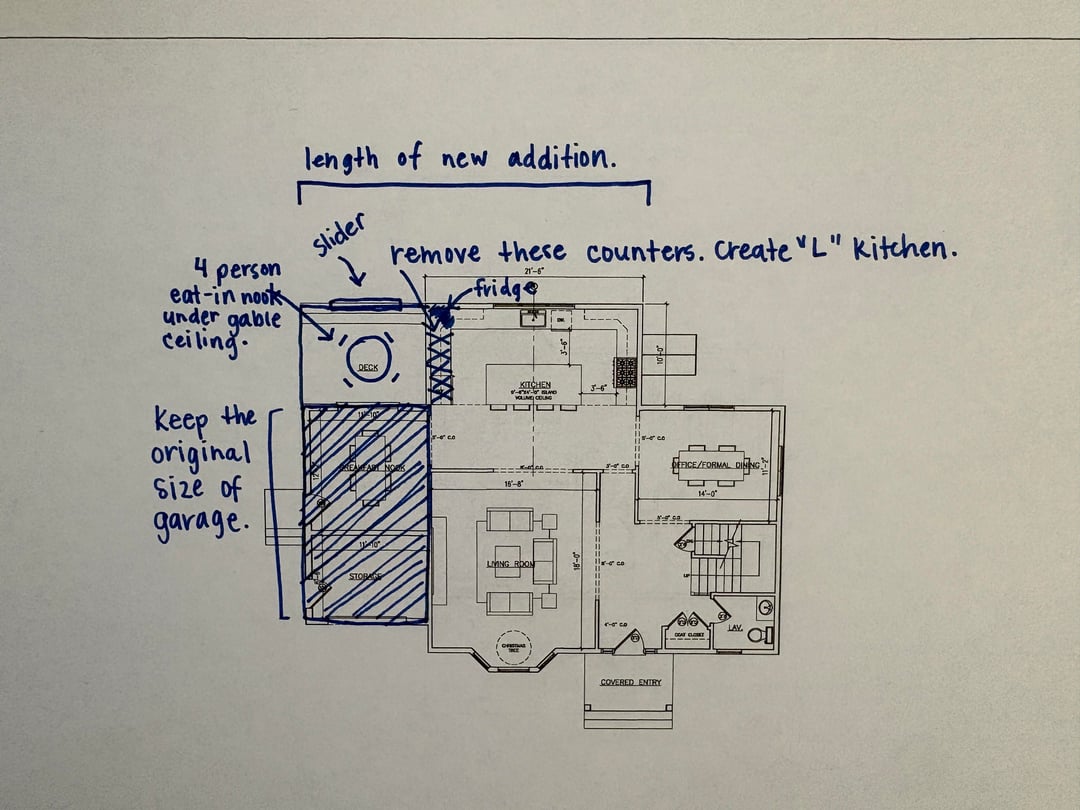 length of new addition.
slider
remove these counters. Create "L" Kitchen.
4 person
eat-in nook
under gable
ceiling.
21'-6"
fridge
DW.
DECK
3'-6"
10'-0"
KITCHEN
VOLUME CEILING
3'-6"
Keep the
original
size of
garage.
11'-10"
5'-0" C.O
5'-0" C.O
BREAKFAST NOOK
OFFICE/FORMAL DINING
11'-2"
3'-0" C.O
16'-8"
14'-0"
5'-0" C.O
11'-10"
LIVING ROOM
18'-0"
STORAGE
UP
4'-0" C.O
COAT CLOSET
LAV.
CHRISTMAS
TREE
COVERED ENTRY